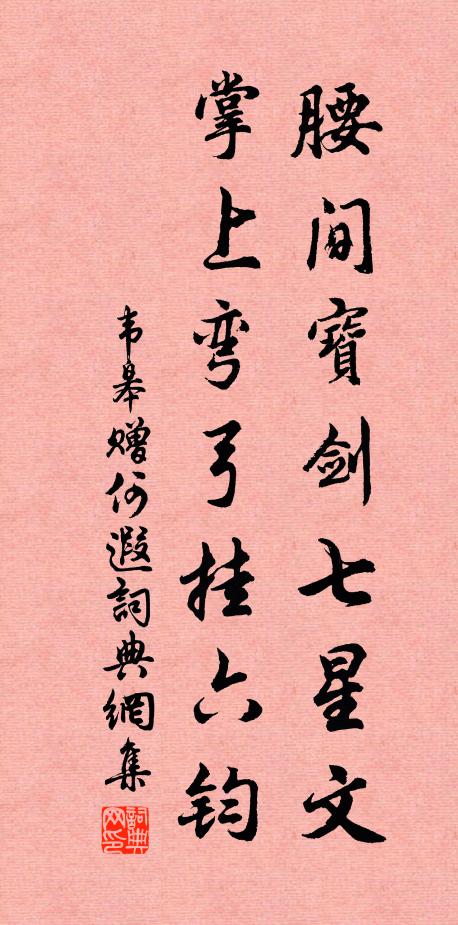 腰间寶劍七星文
掌上弯弓挂六钧
韦皋赠何遐詞典網集
詞典网印